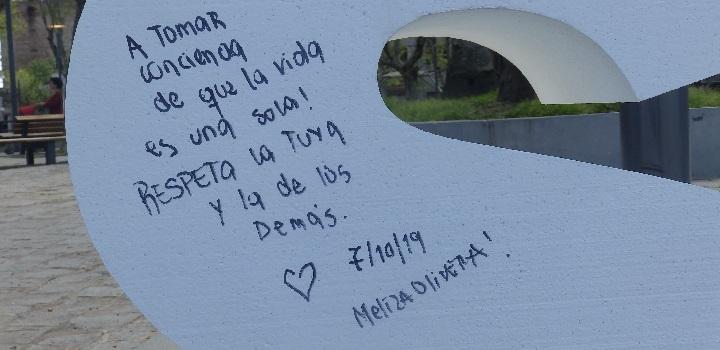 A TOMAR
conciencia
de que la vida
es una sola!
RESPETA la TUYA
Y la de los
Demás.
♡ 7/10/19
Meliza OliVERA!